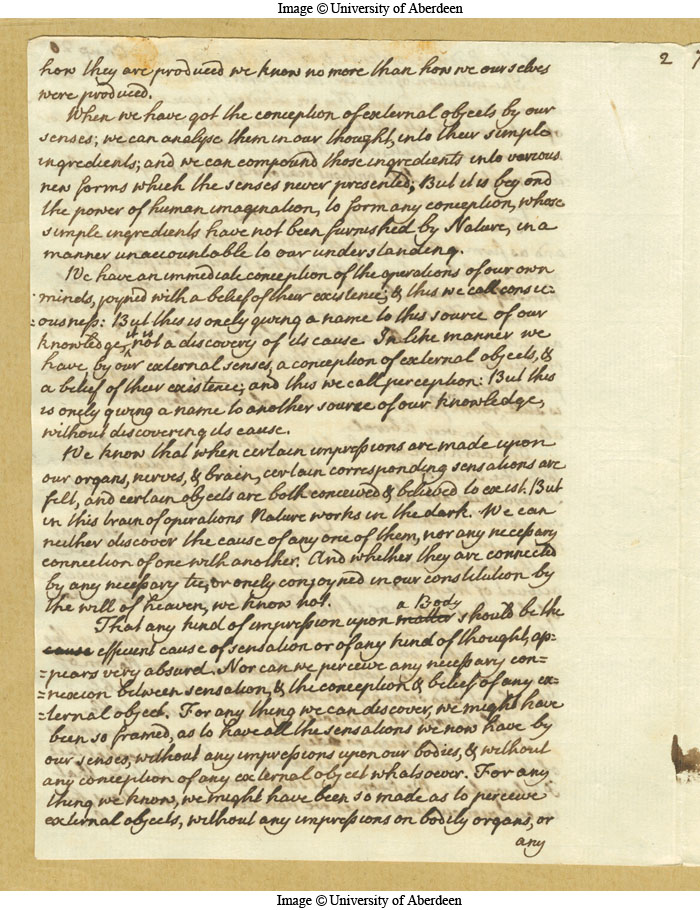 Image © University of Aberdeen
2
how they are produced we know no more than how we ourselves
were produced.
When we have got the conception of external objects by our
senses; we can analyse them in our thought, into their simple
ingredients; and we can compound those ingredients into various
new forms which the senses never presented; But it is beyond
the power of human imagination, to form any conception, whose
simple ingredients have not been furnished by Nature, in a
manner unaccountable to our understanding.
We have an immediate conception of the operations of our own
minds, joyned with a belief of their existence; & this we call consci-
-ousness: But this is onely giving a name to this source of our
knowledge, it is not a discovery of its cause. In like manner we
have, by our external senses, a conception of external objects, &
a belief of their existence; and this we call perception: But this
is onely giving a name to another source of our knowledge,
without discovering its cause.
We know that when certain impressions are made upon
our organs, nerves, & brain, certain corresponding sensations are
felt, and certain objects are both conceived & believed to exist. But
in this train of operations Nature works in the dark. We can
neither discover the cause of any one of them, nor any necessary
connection of one with another. And whether they are connected
by any necessary tie, or onely conjoyned in our constitution by
the will of heaven, we know not.
That any kind of impression upon matter a Body should be the
cause efficient cause of sensation or of any kind of thought, ap=
=pears very absurd. Nor can we perceive any necessary con=
=nexion between sensation, & the conception & belief of any ex=
=ternal object. For any thing we can discover, we might have
been so framed, as to have all the sensations we now have by
our senses, without any impressions upon our bodies, & without
any conception of any external object whatsoever. For any
thing we know, we might have been so made as to perceive
external objects, without any impressions on bodily organs, or
any
Image © University of Aberdeen